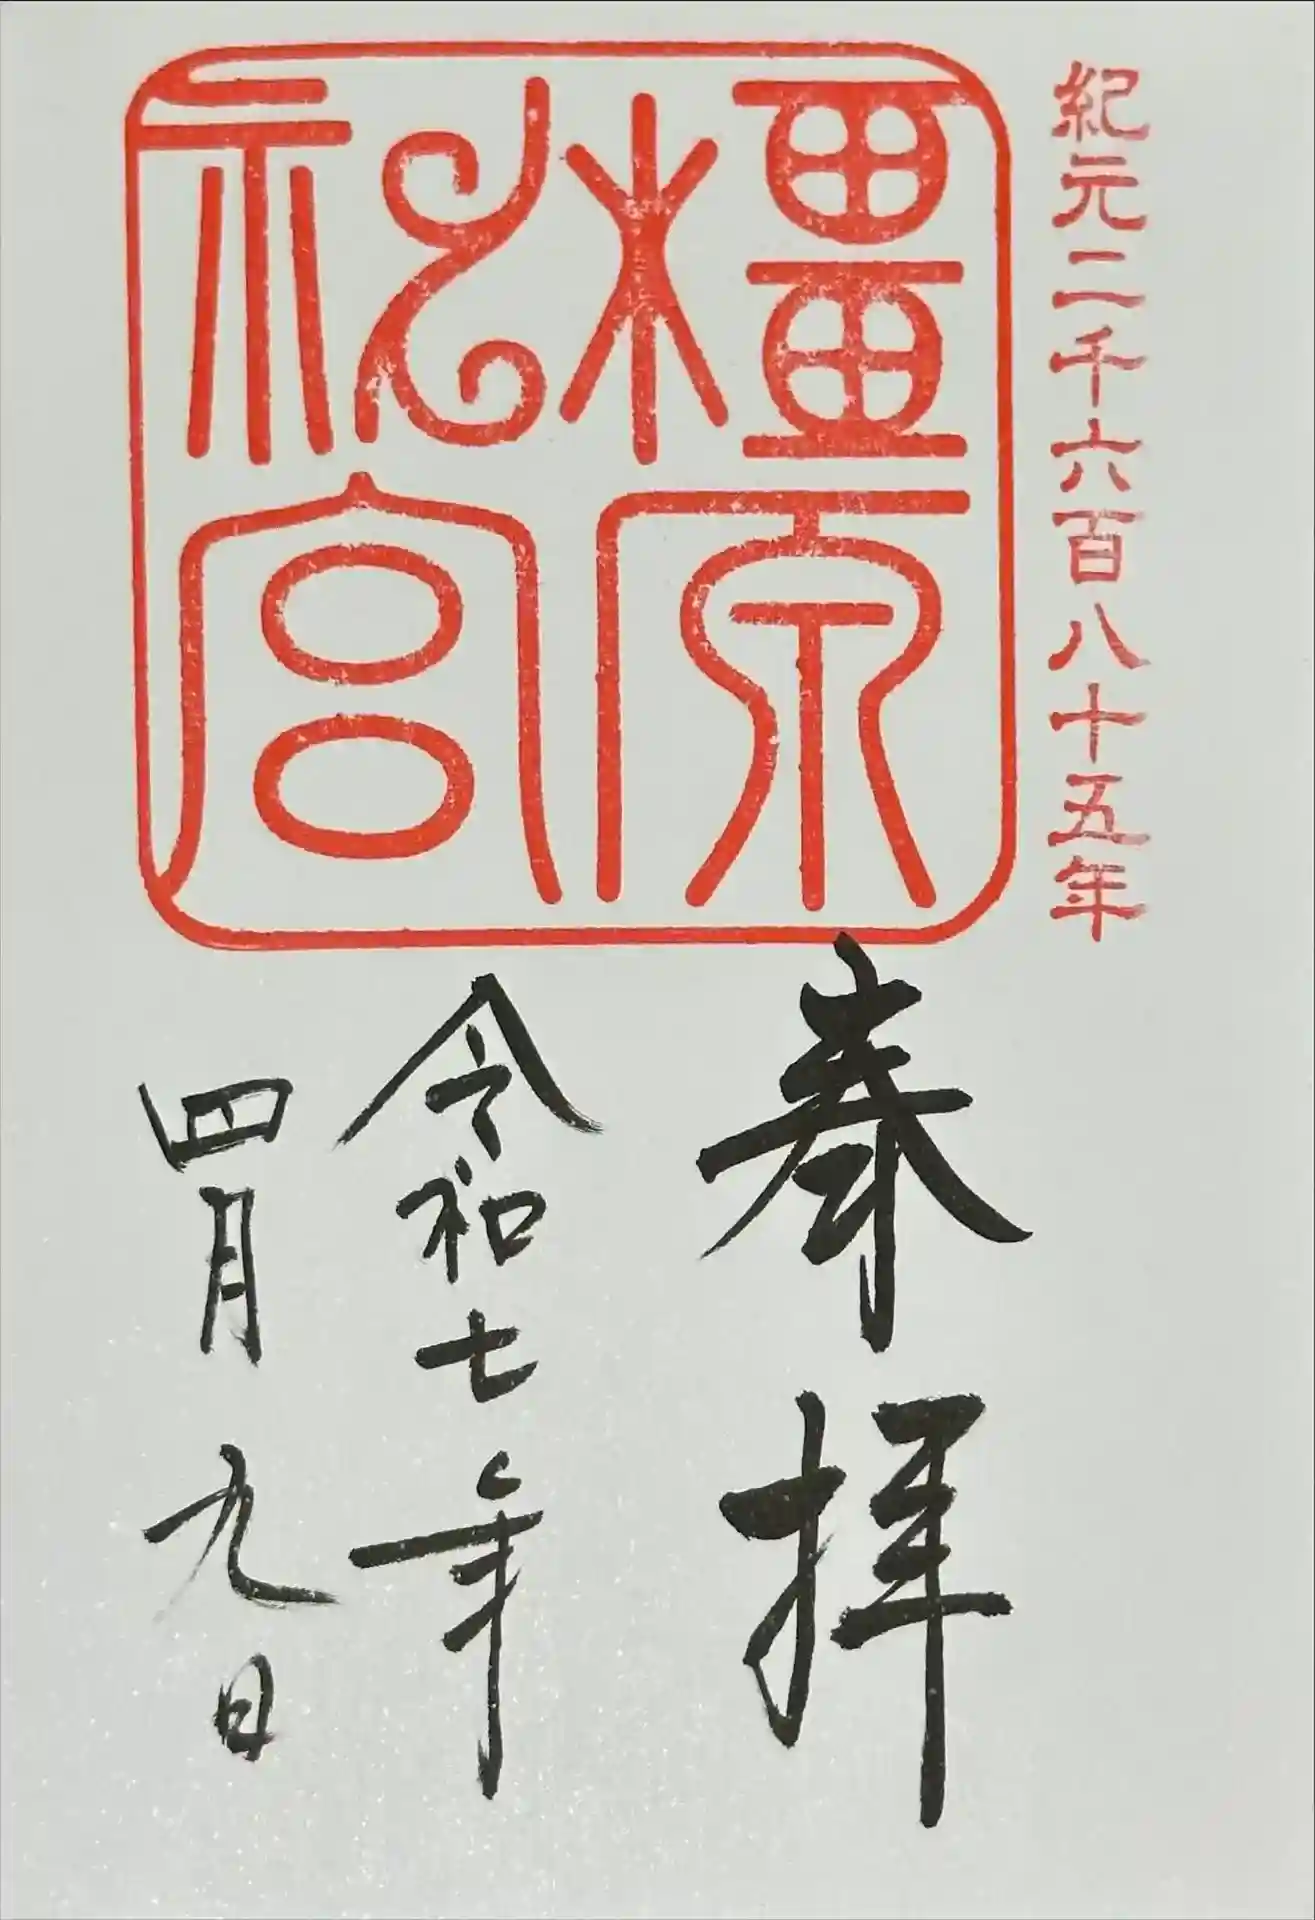 紀元二千六百八十五年
橿原
神宮
奉拝
令和七年
四月九日